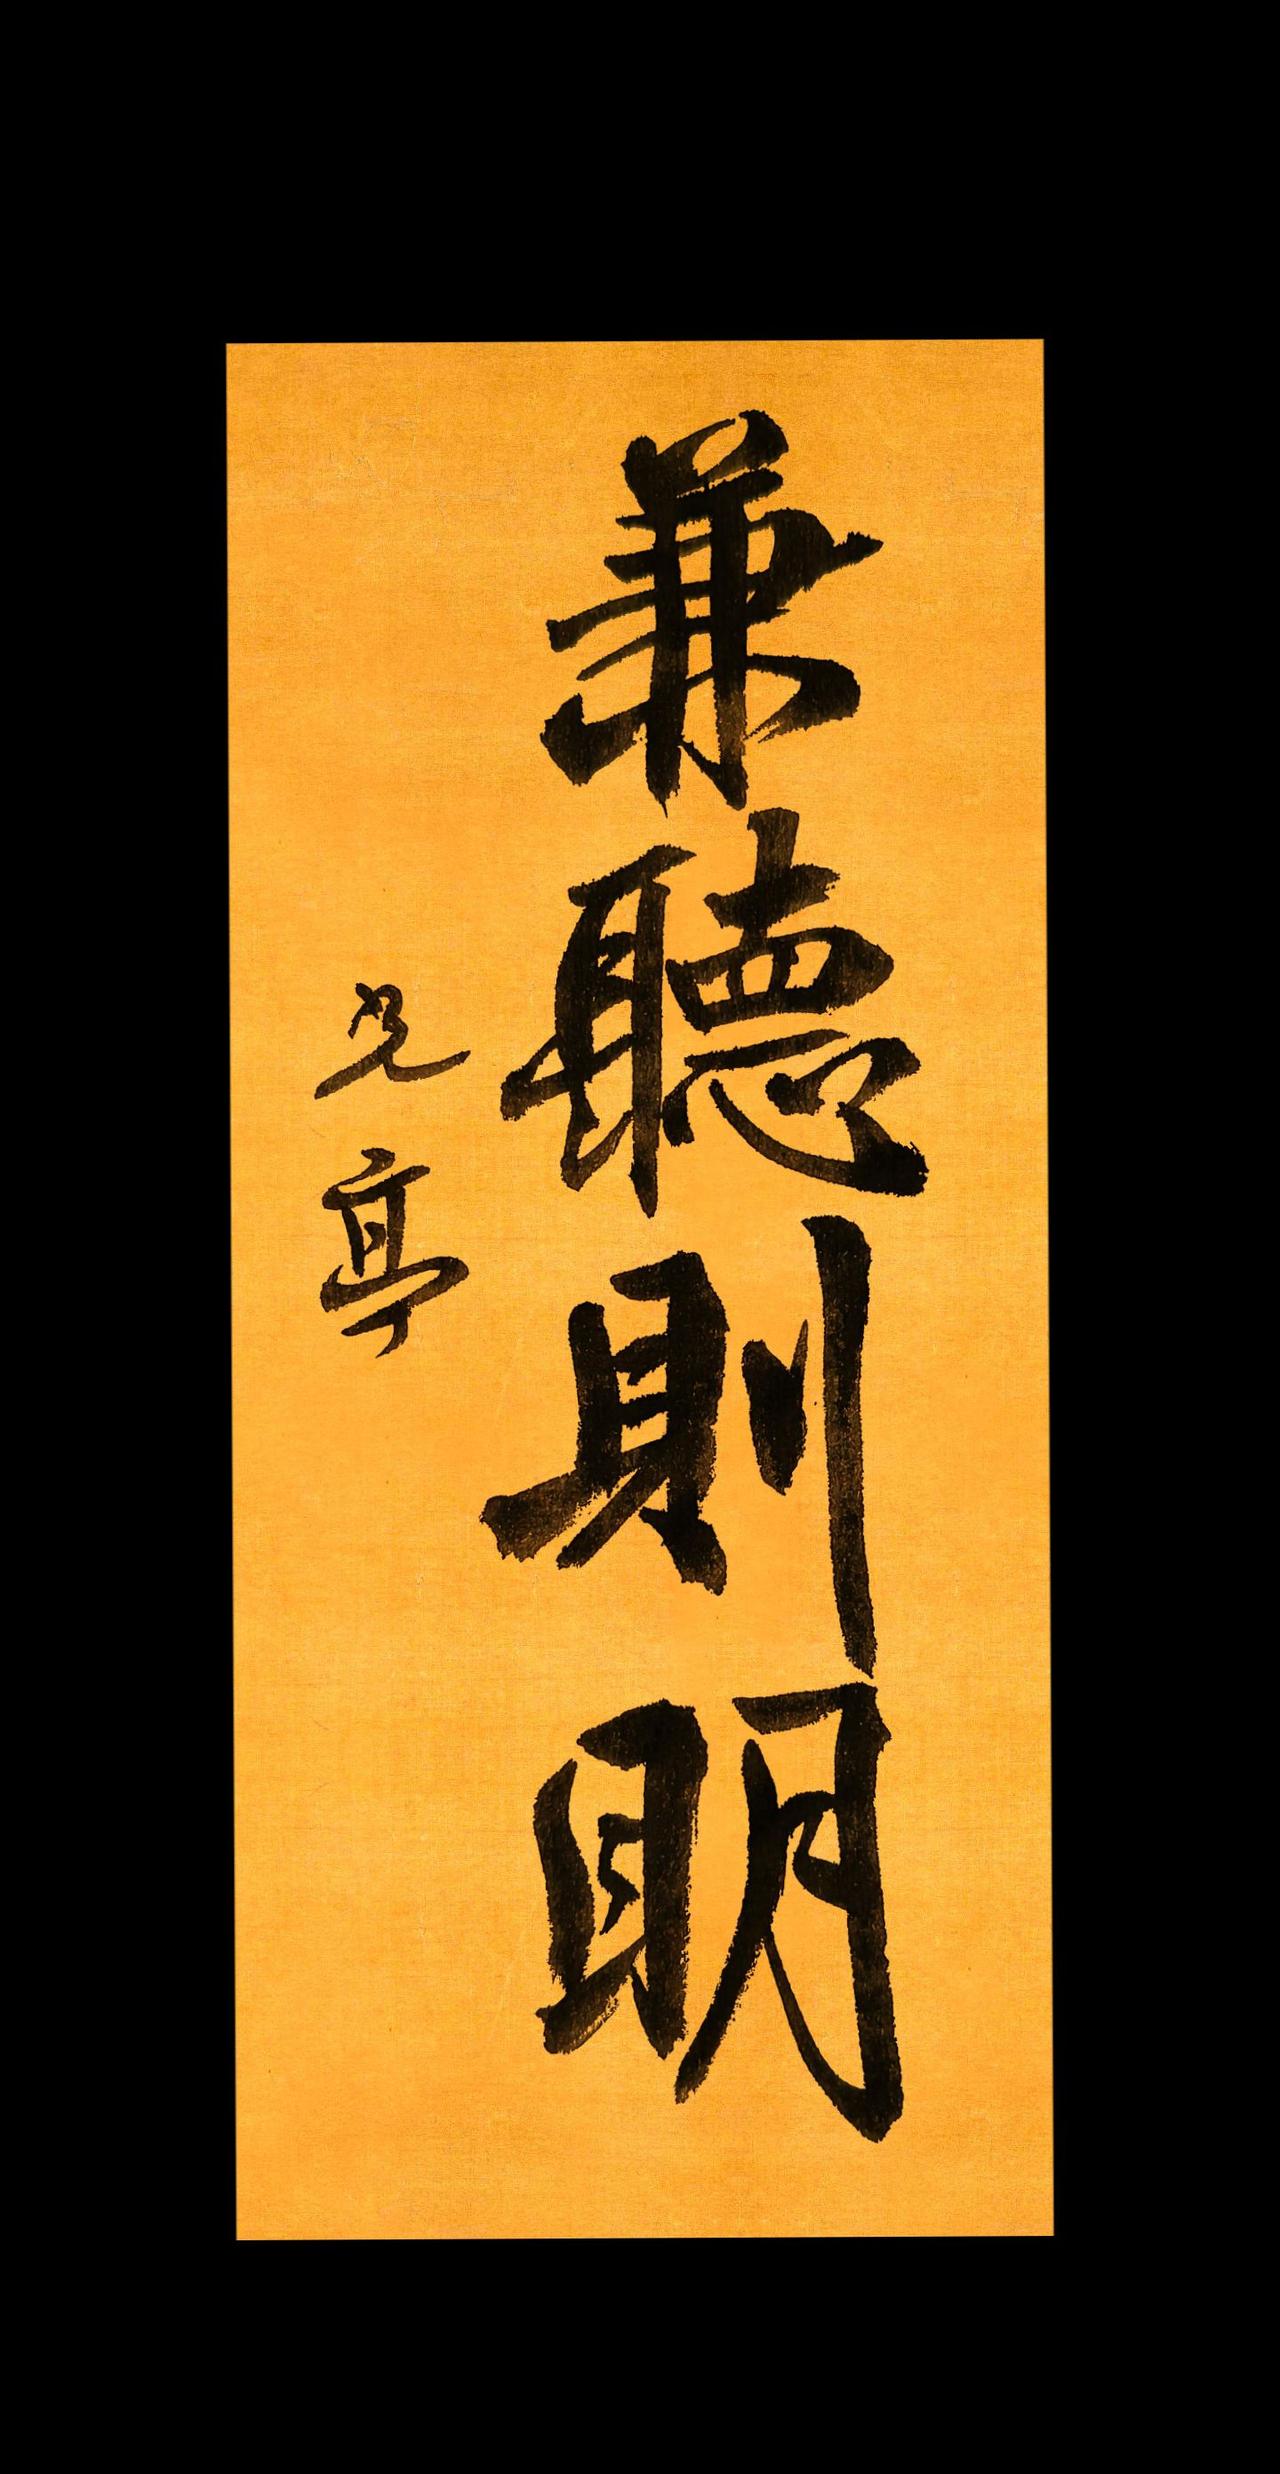 兼聽則明
光亭